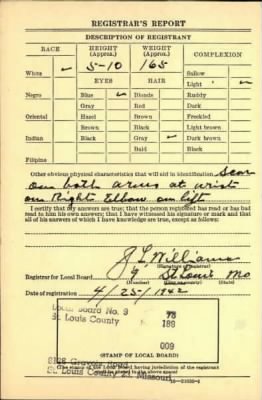 REGISTRAR'S REPORT
DESCRIPTION OF REGISTRANT
RACE HEIGHT (Approx.) WEIGHT (Approx.) COMPLEXION
5-10 165 Sallow
White ✓ EYES HAIR Light ✓
Negro Blue ✓ Blonde Ruddy
Gray Red Dark
Oriental Hazel Brown ✓ Freckled
Brown Black Light brown
Indian Black Gray Dark brown
Bald Black
Filipino
Other obvious physical characteristics that will aid in identification Scar
on both arms at wrist
on Right Elbow on left
I certify that my answers are true; that the person registered has read or has had
read to him his own answers; that I have witnessed his signature or mark and that
all of his answers of which I have knowledge are true, except as follows:
J L Williams
(Signature of registrar)
Registrar for Local Board 9 St Louis Mo
(Number) (City or county) (State)
Date of registration 4/25/1942
Local Board No. 9 78
St Louis County 189
009
(STAMP OF LOCAL BOARD)
Gravois Road
St Louis County Missouri